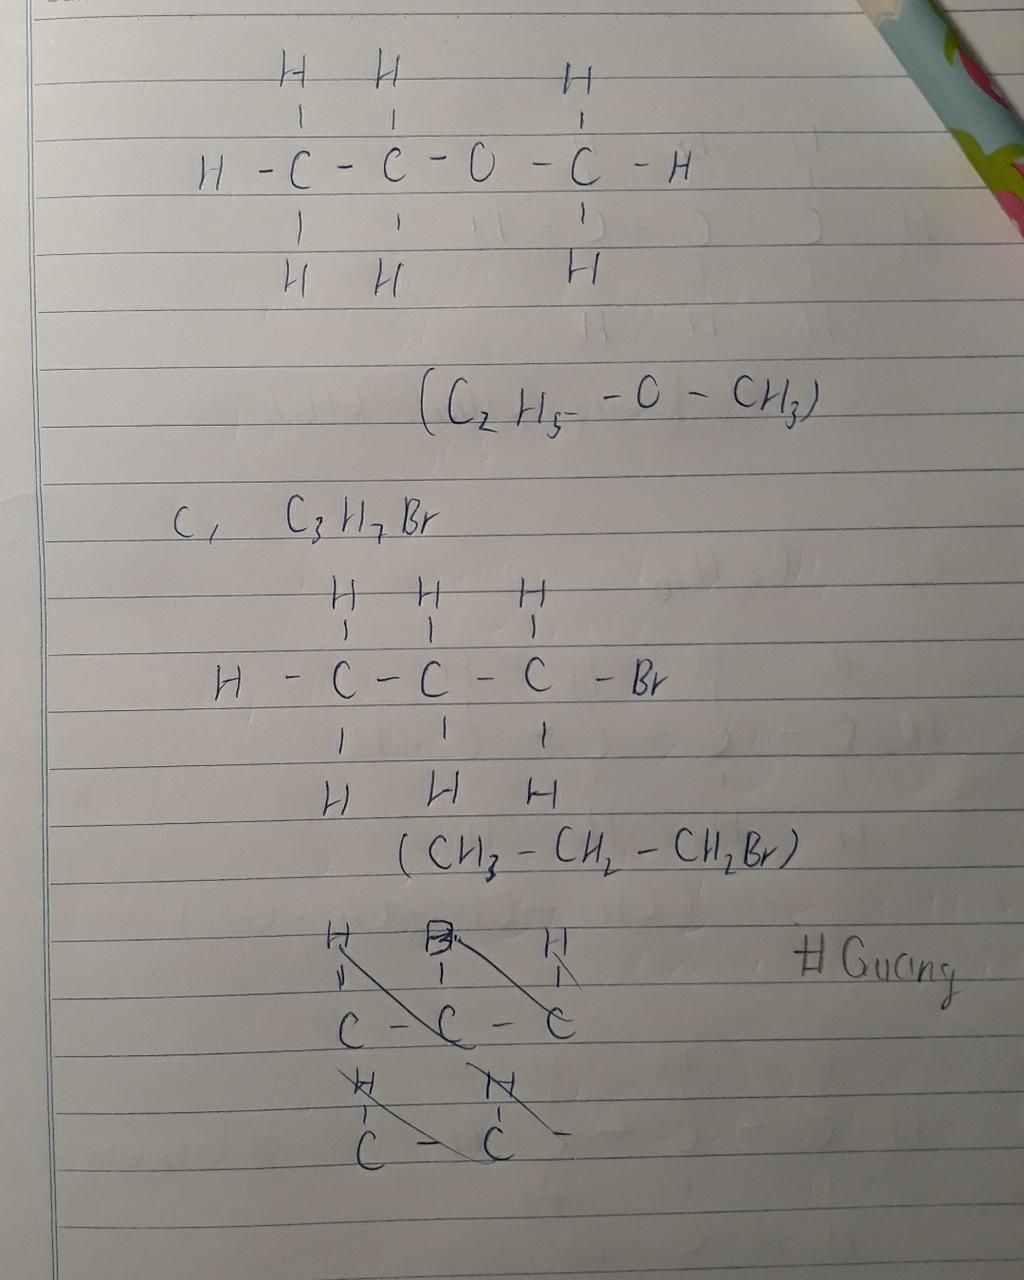 H H H
H - C - C - O - C - H
H H H
(C₂H₅ - O - CH₃)
C, C₃H₇Br
H H H
H - C - C - C - Br
H H H
(CH₃ - CH₂ - CH₂Br)
H B H
C - C - C
H H
C - C -